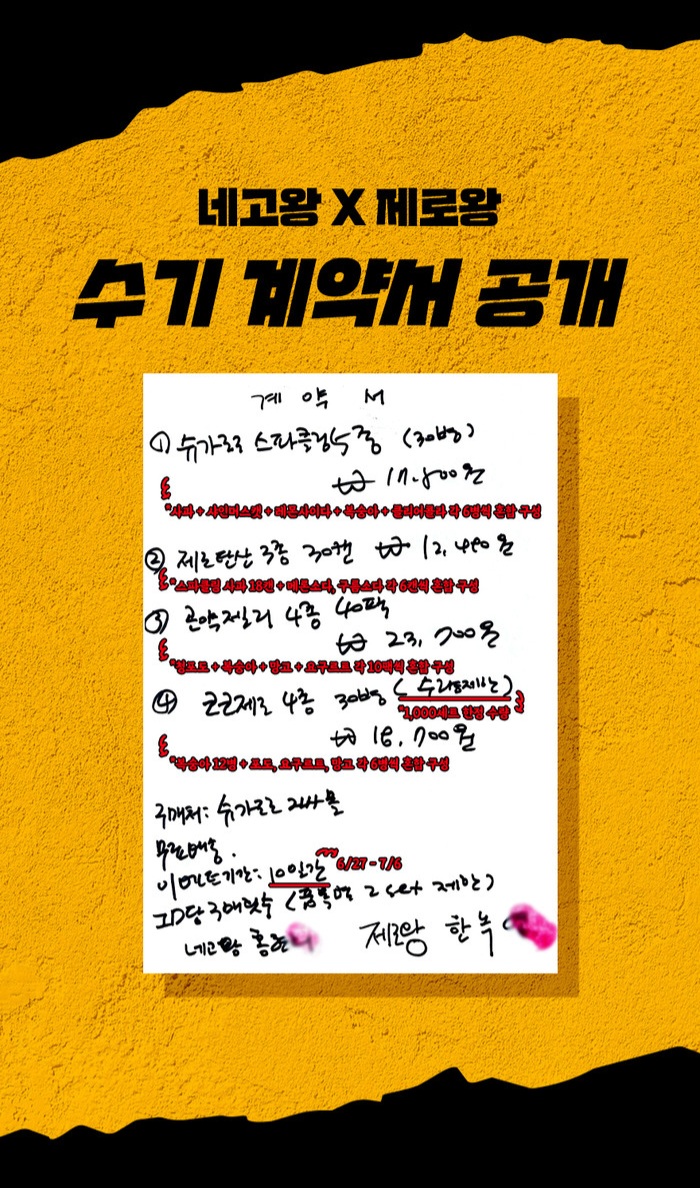 네고왕 X 제로왕
수기 계약서 공개
계 약 서
① 슈가로로 스파클링 5종 (30병)
₩ 17.800원
*사과 + 샤인머스켓 + 레몬사이다 + 복숭아 + 트리어콜라 각 6병씩 혼합 구성
② 제로탄산 3종 30캔 ₩ 12,490원
*스파클링 사과 18캔 + 레몬소다, 구름소다 각 6캔씩 혼합 구성
③ 곤약젤리 4종 40팩
₩ 23,700원
*청포도 + 복숭아 + 망고 + 요구르트 각 10팩씩 혼합 구성
④ 코코제로 4종 30병 (수량제한)
*1,000세트 한정 수량
₩ 16,700원
*복숭아 12병 + 포도, 요구르트, 망고 각 6병씩 혼합 구성
구매처: 슈가로로 자사몰
무료배송.
이벤트기간: 10일간 6/27 - 7/6
ID당 구매횟수 (품목별 2 set 제한)
네고왕 홍
제로왕 한녹